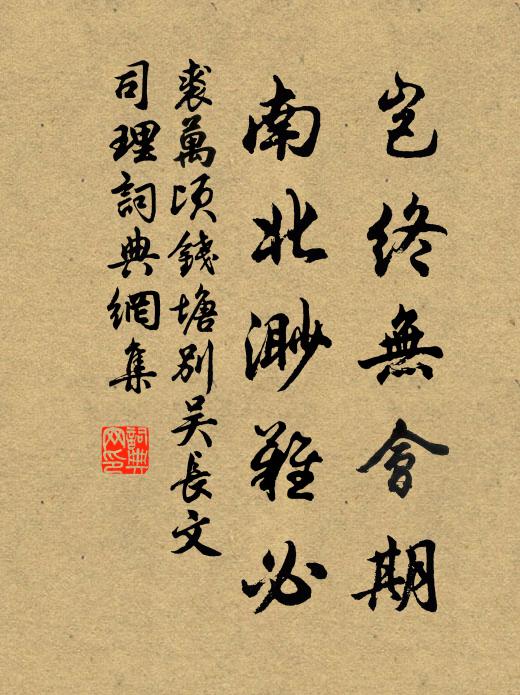 豈終無會期
南北渺難必
裘萬頃錢塘別吴長文
司理詞典網集
詞典
网印